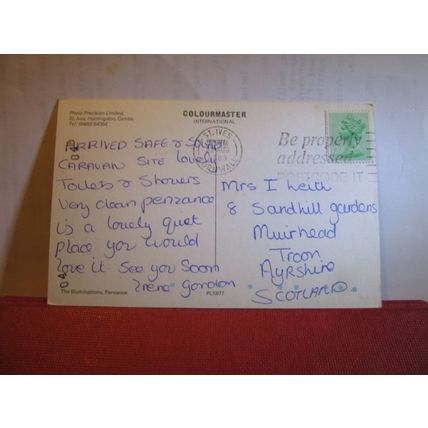 Photo Precision Limited,
St. Ives, Huntingdon, Cambs.
Tel: (0480) 64364
COLOURMASTER
INTERNATIONAL
ST. IVES
CORNWALL
Be properly
addressed
POSTCODE IT
ARRIVED SAFE & Sound
CARAVAN SITE lovely
Toilets & Showers
Very clean penzance
is a lovely quiet
place you would
love it See you Soon
Irene gordon
Mrs I Leith
8 Sandhill gardens
Muirhead
Troon
AYRShire
SCOTLAND
The Illuminations, Penzance.
PLX977